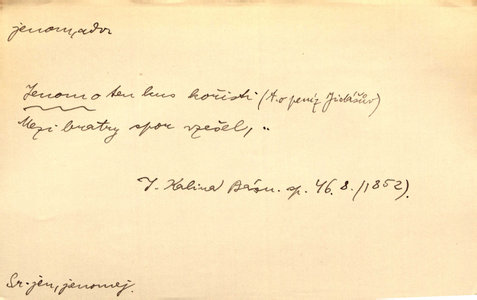 jenom, adv.
Jenom o ten kus kořisti (t. o peníz Jidášův)
Mezi bratry spor vzešel, „
J. Kalina Básn. sp. 46. 8. (1852).
Sr. jen, jenomej.